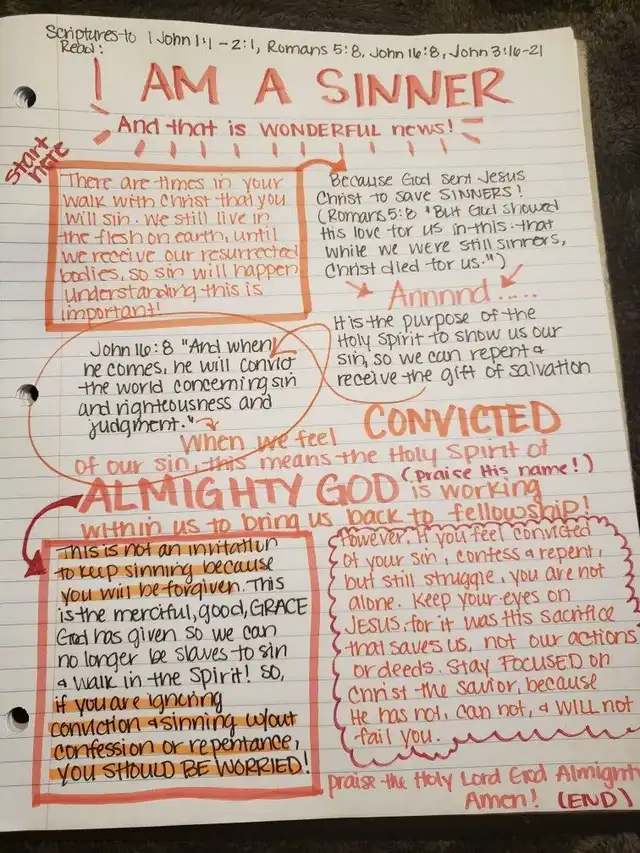 Scriptures to 1 John 1:1 - 2:1, Romans 5:8, John 16:8, John 3:16-21
Read:
I AM A SINNER
And that is WONDERFUL news!
start
here
There are times in your
walk with Christ that you
will sin. We still live in
the flesh on earth, until
we receive our resurrected
bodies, so sin will happen
understanding this is
important!
Because God sent Jesus
Christ to save SINNERS!
(Romans 5:8 "But God showed
His love for us in this: that
while we were still sinners,
Christ died for us.")
Annnnd.....
It is the purpose of the
Holy Spirit to show us our
sin, so we can repent &
receive the gift of salvation
John 16:8 "And when
he comes, he will convict
the world concerning sin
and righteousness and
judgment."
When we feel CONVICTED
of our sin, this means the Holy Spirit of
ALMIGHTY GOD (praise His name!) is working
within us to bring us back to fellowship!
This is not an invitation
to keep sinning because
you will be forgiven. This
is the merciful, good, GRACE
God has given so we can
no longer be slaves to sin
& walk in the Spirit! So,
if you are ignoring
conviction & sinning w/out
confession or repentance,
you SHOULD BE WORRIED!
However, if you feel convicted
of your sin, confess & repent,
but still struggle, you are not
alone. Keep your eyes on
JESUS, for it was His sacrifice
that saves us, not our actions
or deeds. Stay FOCUSED on
Christ the savior, because
He has not, can not, & WILL not
fail you.
praise the Holy Lord God Almighty
Amen! (END)